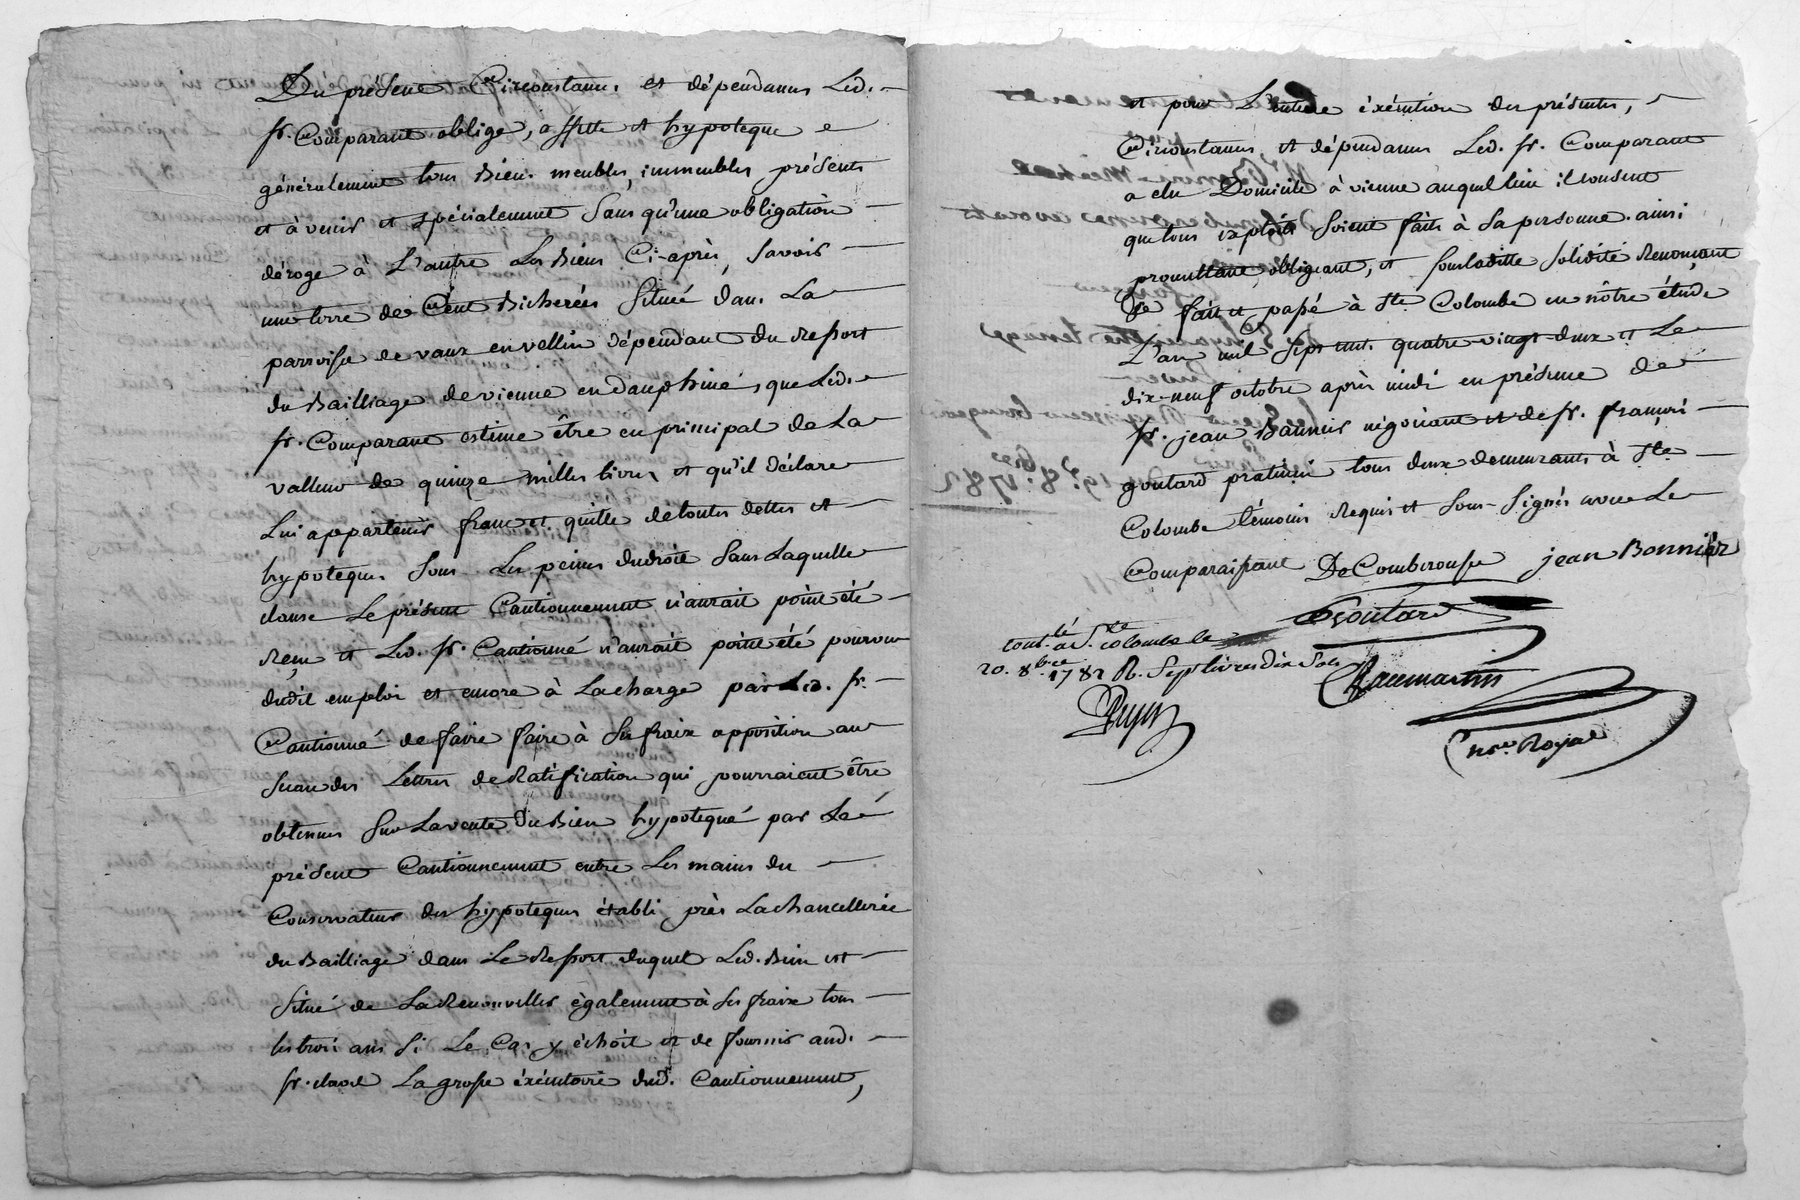 Du présent Circonstances et dépendances Led.
sr. Comparant oblige, affecte et hypoteque
généralement tous Biens meubles, immeubles présents
et à venir et spécialement Sans qu'une obligation
déroge à L'autre Les Biens Ci-après, Savoir
une terre de Cent Bicherées Située dans La
parroisse de vaux en vellin dépendant du Ressort
du Bailliage de vienne en dauphiné, que Led.
sr. Comparant estime être en principal de La
valleur de quinze milles livres et qu'il déclare
Lui appartenir franc et quitte de toutes dettes et
hypoteques Sous Les peines du droit Sans Laquelle
clause Le présent Cautionnement n'aurait point été
Reçu et Led. sr. Cautionné n'aurait point été pourvu
dudit emploi et encore à La charge par Led. sr.
Cautionné de faire faire à Ses fraix opposition au
Sceau des Lettres de Ratification qui pourraient être
obtenues Sur La vente du Bien hypotequé par Le
présent Cautionnement entre Les mains du
Conservateur des hypoteques établi près La chancellerie
du Bailliage dans Le Ressort duquel Led. Bien est
Situé de La Renouveller également à Ses fraix tous
les trois ans Si Le Cas y échoit et de fournir aud.
sr. La grosse éxécutoire dud. Cautionnement,
et pour L'entiere éxécution des présentes,
Circonstances et dépendances Led. sr. Comparant
a elu Domicile à vienne auquel lieu il consent
que tous exploits Soient faits à Sa personne. ainsi
promettant, obligeant, et Sous laditte Solidité Renonçant
fait et passé à Ste Colombe en nôtre étude
L'an mil Sept cent quatre-vingt-deux et Le
dix-neuf octobre après midi en présence de
sr. jean Bannier négociant et de sr. françois
goutard praticien tous deux demeurants à Ste
Colombe témoins Requis et Sous-Signés avec Le
Comparaissant DeCombrousse jean Bonnier
Goutard
Contlé à Ste colombe le
20. 8bre 1782 R. Sept livres dix Sols
nre. Royal